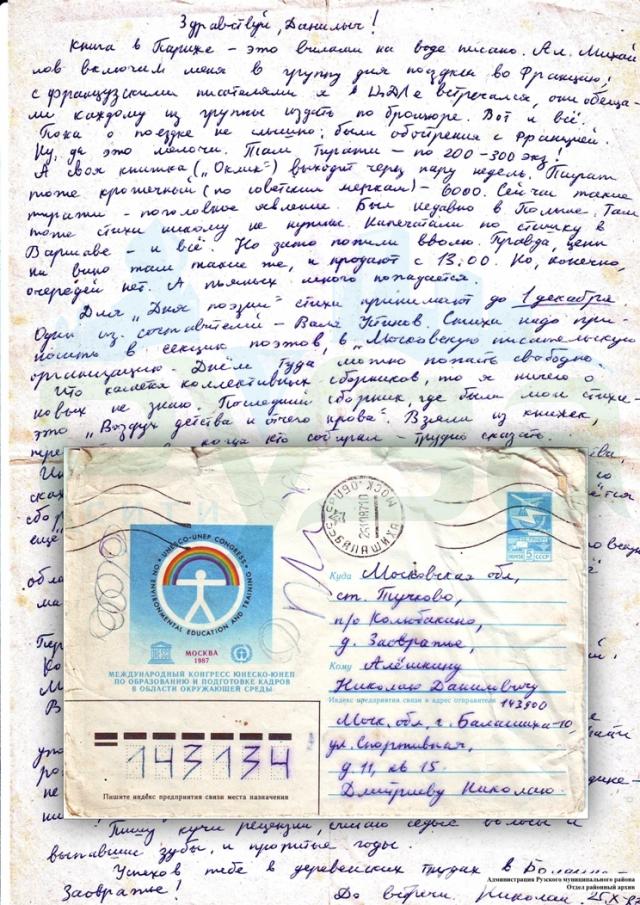 Здравствуй, Данилыч!
Книга в Париже – это вилами на воде писано. Ал. Михай
лов включил меня в группу для поездки во Францию,
с французскими писателями я в ЦДЛе встречался, они обеща-
ли каждому из группы издать по брошюре. Вот и всё.
Пока о поездке не слышно: были обострения с Францией.
Ну, да это мелочи. Там тиражи – по 200-300 экз!
А своя книжка („Оклик") выходит через пару недель. Тираж
тоже крошечный (по советским меркам) – 6000. Сейчас такие
тиражи – поголовное явление. Был недавно в Польше. Там
тоже стихи никому не нужны. Напечатали по стишку в
Варшаве – и всё. Но зато попили вволю. Правда, цены
на вино там такие же, и продают с 13.00. Но, конечно,
очередей нет. А пьяных много попадается.
Для „Дня поэзии" стихи принимают до 1 декабря
Один из составителей – Валя Устинов. Стихи надо при-
носить в секцию поэтов, в „Московскую писательскую
организацию. Днём туда можно попасть свободно.
Что касается коллективных сборников, то я ничего о
новых не знаю. Последний сборник, где были мои стихи –
это „Воздух детства и отчего крова". Взяли из книжек,
когда кто собирал – трудно сказать.
UNESCO-UNEP CONGRESS
ENVIRONMENTAL EDUCATION AND TRAINING
МОСКВА
1987
МЕЖДУНАРОДНЫЙ КОНГРЕСС ЮНЕСКО-ЮНЕП
ПО ОБРАЗОВАНИЮ И ПОДГОТОВКЕ КАДРОВ
В ОБЛАСТИ ОКРУЖАЮЩЕЙ СРЕДЫ
БАЛАШИХА МОСК. ОБЛ.
5 СССР
Куда Московская обл,
ст. Тучково,
п/о Колюбакино,
д. Заовражье,
Кому Алёшкину
Николаю Даниловичу
Индекс предприятия связи и адрес отправителя 143900
Моск. обл, г. Балашиха-10,
ул. Спортивная,
д. 11, кв 15.
Дмитриеву Николаю
143134
Пишите индекс предприятия связи места назначения
Пишу кучи рецензий, считаю седые волосы и
выпавшие зубы, и пропитые годы.
Успехов тебе в деревенских трудах в
Заовражье!
До встречи. Николай
Администрация Рузского муниципального района
Отдел районный архив